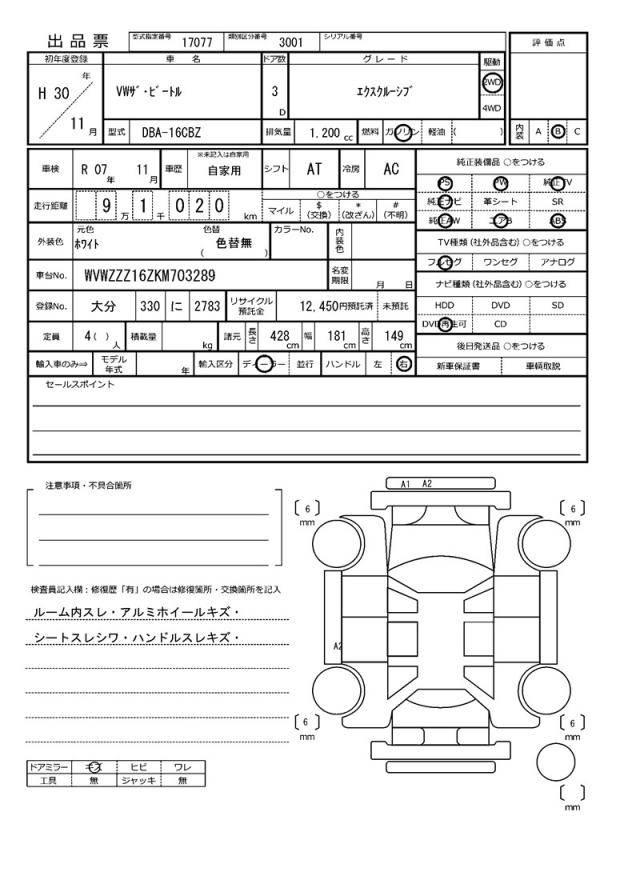 出品票 型式指定番号 17077 類別区分番号 3001 シリアル番号
評価点
初年度登録 車名 ドア数 グレード 駆動
H 30 年 11 月
VWザ・ビートル 3 D エクスクルーシブ 2WD
4WD
型式 DBA-16CBZ 排気量 1.200 cc 燃料 ガソリン 軽油 ( )
内装 A B C
車検 R 07 年 11 月 車歴 ※未記入は自家用 自家用 シフト AT 冷房 AC
純正装備品 ○をつける
PS PW 純正TV
純正ナビ 革シート SR
純正AW エアB ABS
走行距離 9 万 1 千 0 2 0 km ○をつける
マイル $(交換) *(改ざん) #(不明)
外装色 元色 ホワイト 色替 ( 色替無 ) カラーNo. 内装色
TV種類 (社外品含む) ○をつける
フルセグ ワンセグ アナログ
車台No. WVWZZZ16ZKM703289 名変期限 月 日
ナビ種類 (社外品含む) ○をつける
HDD DVD SD
DVD再生可 CD
登録No. 大分 330 に 2783 リサイクル預託金 12,450円預託済 未預託
定員 4( ) 人 積載量 kg 諸元 長さ 428 cm 幅 181 cm 高さ 149 cm
後日発送品 ○をつける
新車保証書 車輌取説
輸入車のみ⇒ モデル年式 年 輸入区分 ディーラー 並行 ハンドル 左 右
セールスポイント
注意事項・不具合箇所
A1 A2
6 mm
6 mm
検査員記入欄：修復歴「有」の場合は修復箇所・交換箇所を記入
ルーム内スレ・アルミホイールキズ・
シートスレシワ・ハンドルスレキズ・
A2
6 mm
6 mm
ドアミラー キズ ヒビ ワレ
工具 無 ジャッキ 無
mm